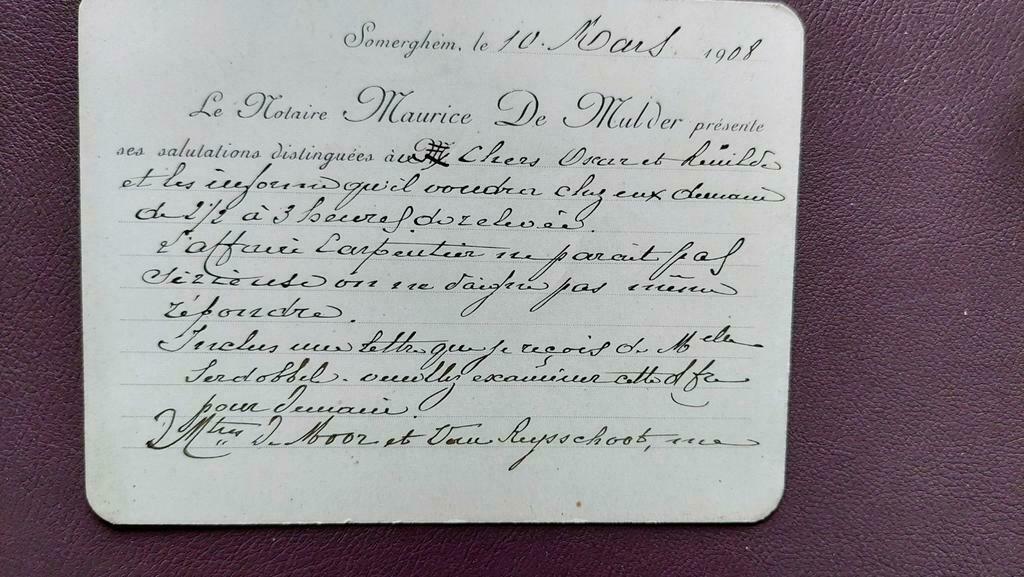 Somerghem, le 10. Mars. 1908
Le Notaire Maurice De Mulder présente
ses salutations distinguées à Chers Oscar et Reinilde
et les informe qu'il voudra chez eux demain
de 2 1/2 à 3 heures de relevée.
L'affaire Carpentier ne parait pas
sérieuse on ne daigne pas même
répondre.
Inclus une lettre que je reçois de Melle
Serdobbel. veuillez examiner cette affre
pour demain.
Mtres De Moor et Van Ruysschoot, me